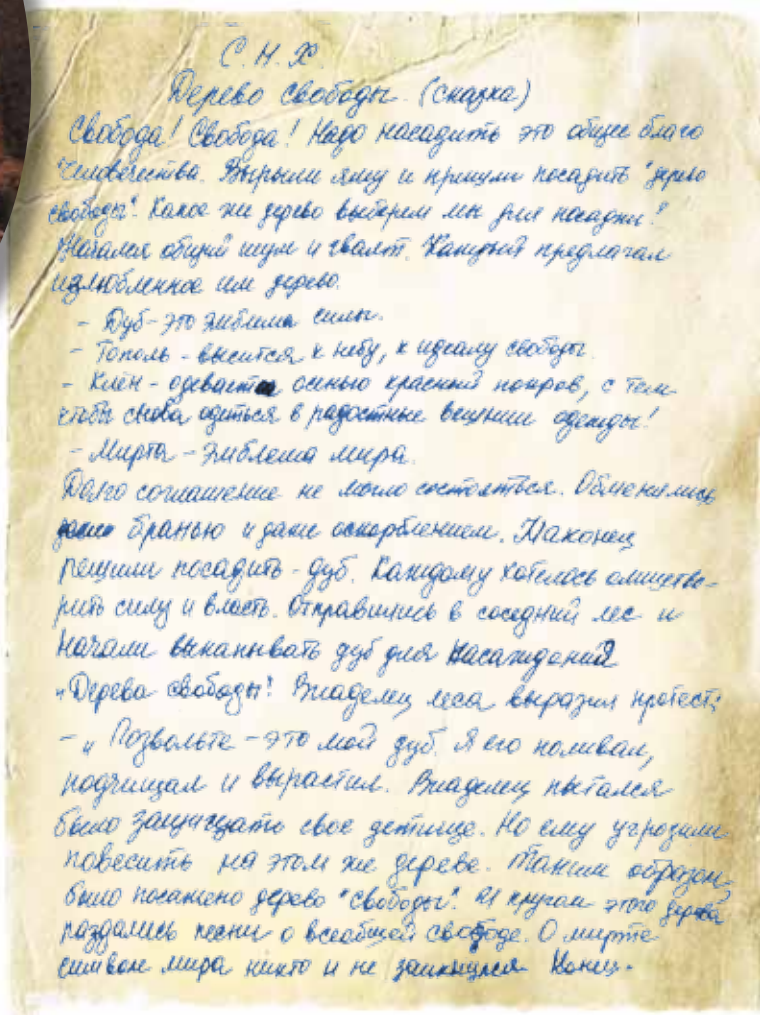 С. Н. Х.
Дерево свободы. (сказка)
Свобода! Свобода! Надо насадить это общее благо
человечества. Вырыли яму и пришли посадить "дерево
свободы". Какое же дерево выберем мы для посадки?
Начался общий шум и гвалт. Каждый предлагал
излюбленное им дерево.
- Дуб - это эмблема силы.
- Тополь - высится к небу, к идеалу свободы.
- Клён - одевает осенью красный покров, с тем
чтобы снова одеться в радостные вешнии одежды!
- Мирта - эмблема мира.
Долго соглашение не могло состояться. Обменялись
бранью и даже оскорблением. Наконец
решили посадить - дуб. Каждому хотелось олицетво-
рить силу и власть. Отправились в соседний лес и
начали выкапывать дуб для насаждений
„Дерева свободы". Владелец леса выразил протест:
- „Позвольте - это мой дуб. Я его поливал,
подчищал и вырастил. Владелец пытался
было защищать свое детище. Но ему угрозили
повесить на этом же дереве. Таким образом,
было посажено дерево "свободы". И кругом этого дерева
раздались песни о всеобщей свободе. О мирте
символе мира никто и не заикнулся. Конец.